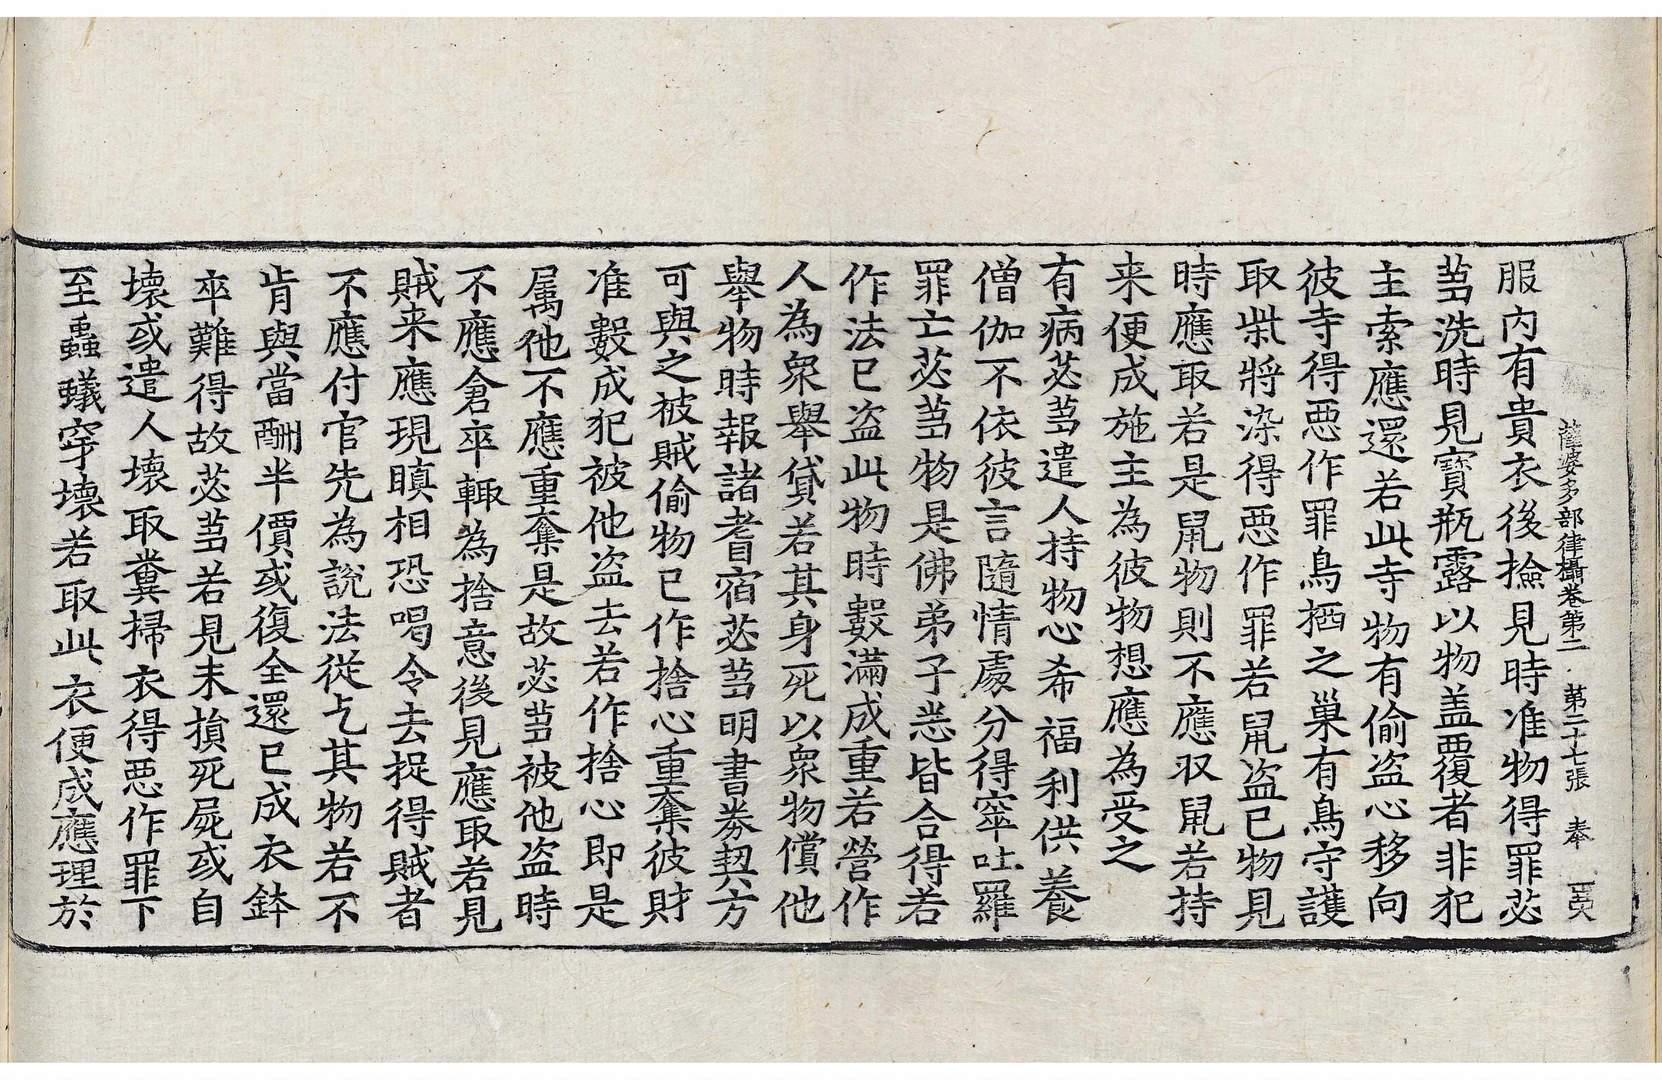 薩婆多部律攝卷第二 第二十七張 奉
服內有貴衣後撿見時准物得罪苾
蒭洗時見寶瓶露以物盖覆者非犯
主索應還若此寺物有偷盗心移向
彼寺得惡作罪鳥栖之巢有鳥守護
取柴將染得惡作罪若是鼠盗已物見
時應取若是鼠物則不應取鼠若持
来便成施主為彼物想應為受之
有病苾蒭遣人持物心希福利供養
僧伽不依彼言隨情處分得窣吐羅
罪亡苾蒭物是佛弟子悉皆合得若
作法已盗此物時數滿成重若營作
人為衆舉貸若其身死以衆物償他
舉物時報諸耆宿苾蒭明書券契方
可與之被賊偷物已作捨心重奪彼財
准數成犯被他盗去若作捨心即是
属他不應重奪是故苾蒭被他盗時
不應倉卒輙為捨意後見應取若見
賊来應現瞋相恐喝令去捉得賊者
不應付官先為說法從乞其物若不
肯與當酬半價或復全還已成衣鉢
卒難得故苾蒭若見未損死屍或自
壞或遣人壞取糞掃衣得惡作罪下
至蟲蟻穿壞若取此衣便成應理於